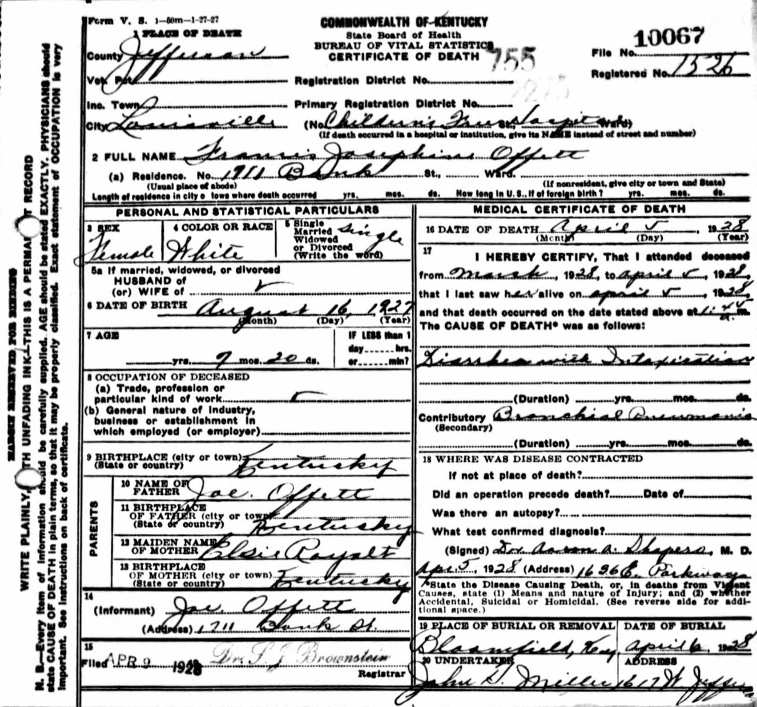 Form V. S. 1-50m-1-27-27
COMMONWEALTH OF KENTUCKY
State Board of Health
BUREAU OF VITAL STATISTICS
CERTIFICATE OF DEATH
755
File No. 10067
Registered No. 1526
1 PLACE OF DEATH
County Jefferson
Vot. Pct.
Registration District No.
Inc. Town
Primary Registration District No.
City Louisville (No. Children's Free Hospital St., Ward)
(If death occurred in a hospital or institution, give its NAME instead of street and number)
2 FULL NAME Francis Josephine Offett
(a) Residence. No. 1711 Bank St., Ward.
(Usual place of abode) (If nonresident, give city or town and State)
Length of residence in city o town where death occurred yrs. mos. ds. How long in U. S., if of foreign birth? yrs. mos. ds.
PERSONAL AND STATISTICAL PARTICULARS
3 SEX
Female
4 COLOR OR RACE
White
5 Single
Married
Widowed
or Divorced
(Write the word)
Single
5a If married, widowed, or divorced
HUSBAND of
(or) WIFE of
6 DATE OF BIRTH August 16, 1927
(Month) (Day) (Year)
7 AGE
yrs. 7 mos. 20 ds.
IF LESS than 1
day hrs.
or min?
8 OCCUPATION OF DECEASED
(a) Trade, profession or
particular kind of work
(b) General nature of industry,
business or establishment in
which employed (or employer)
9 BIRTHPLACE (city or town)
(State or country) Kentucky
PARENTS
10 NAME OF
FATHER Joe Offett
11 BIRTHPLACE
OF FATHER (city or town)
(State or country) Kentucky
12 MAIDEN NAME
OF MOTHER Elsie Royalt
13 BIRTHPLACE
OF MOTHER (city or town)
(State or country) Kentucky
14
(Informant) Joe Offett
(Address) 1711 Bank St
15
Filed APR 9 1928 Dr. S. J. Brownstein
Registrar
MEDICAL CERTIFICATE OF DEATH
16 DATE OF DEATH April 5, 1928
(Month) (Day) (Year)
17
I HEREBY CERTIFY, That I attended deceased
from March, 1928, to April 5, 1928,
that I last saw her alive on April 5, 1928,
and that death occurred on the date stated above at m.
The CAUSE OF DEATH* was as follows:
Diarrhea with Intoxication
(Duration) yrs. mos. ds.
Contributory Bronchial Pneumonia
(Secondary)
(Duration) yrs. mos. ds.
18 WHERE WAS DISEASE CONTRACTED
If not at place of death?
Did an operation precede death? Date of
Was there an autopsy?
What test confirmed diagnosis?
(Signed) Dr. Aaron A. Shapero, M. D.
Apr. 5, 1928 (Address) 1636 E. Parkway
*State the Disease Causing Death, or, in deaths from Violent
Causes, state (1) Means and nature of Injury; and (2) whether
Accidental, Suicidal or Homicidal. (See reverse side for addi-
tional space.)
19 PLACE OF BURIAL OR REMOVAL
Bloomfield, Key
DATE OF BURIAL
April 6 1928
20 UNDERTAKER
John S. Miller
ADDRESS
1617 W Jeffer
MARGIN RESERVED FOR BINDING
WRITE PLAINLY, WITH UNFADING INK—THIS IS A PERMANENT RECORD
N. B.—Every item of information should be carefully supplied. AGE should be stated EXACTLY. PHYSICIANS should
state CAUSE OF DEATH in plain terms, so that it may be properly classified. Exact statement of OCCUPATION is very
important. See instructions on back of certificate.